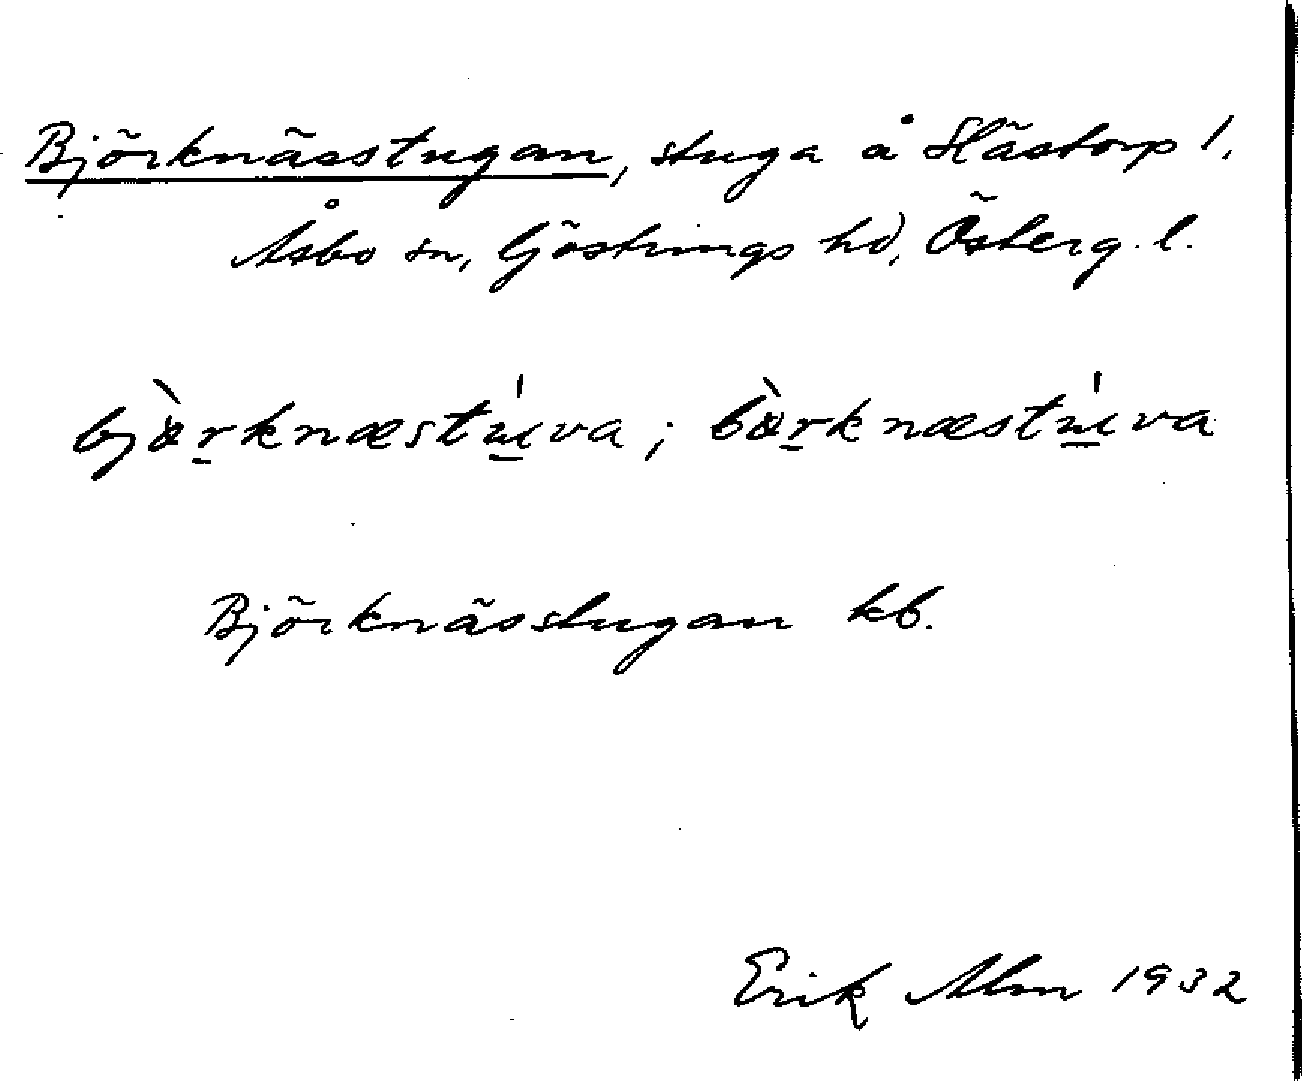 Björknässtugan, stuga å Hästorp 1,
Åsbo sn, Göstrings hd, Österg. l.
bjɷ̀r̠knæstɯ̠́va; bɷ̀r̠knæstɯ̠́va
Björknässtugan kb.
Erik Alm 1932